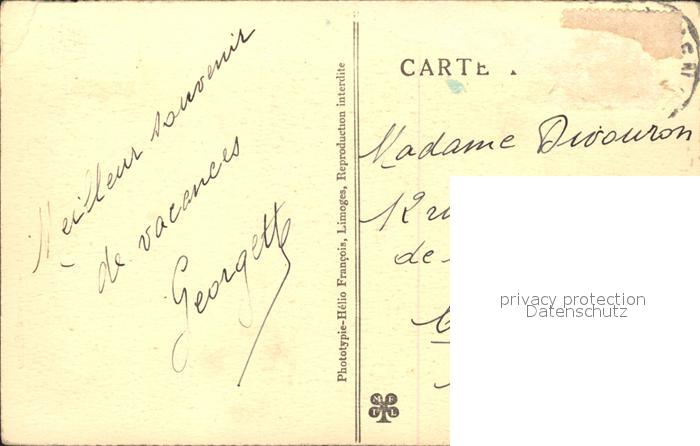 Meilleur souvenir
de vacances
Georgette
Phototypie-Hélio François, Limoges, Reproduction interdite
CARTE
Madame
12
de
privacy protection
Datenschutz